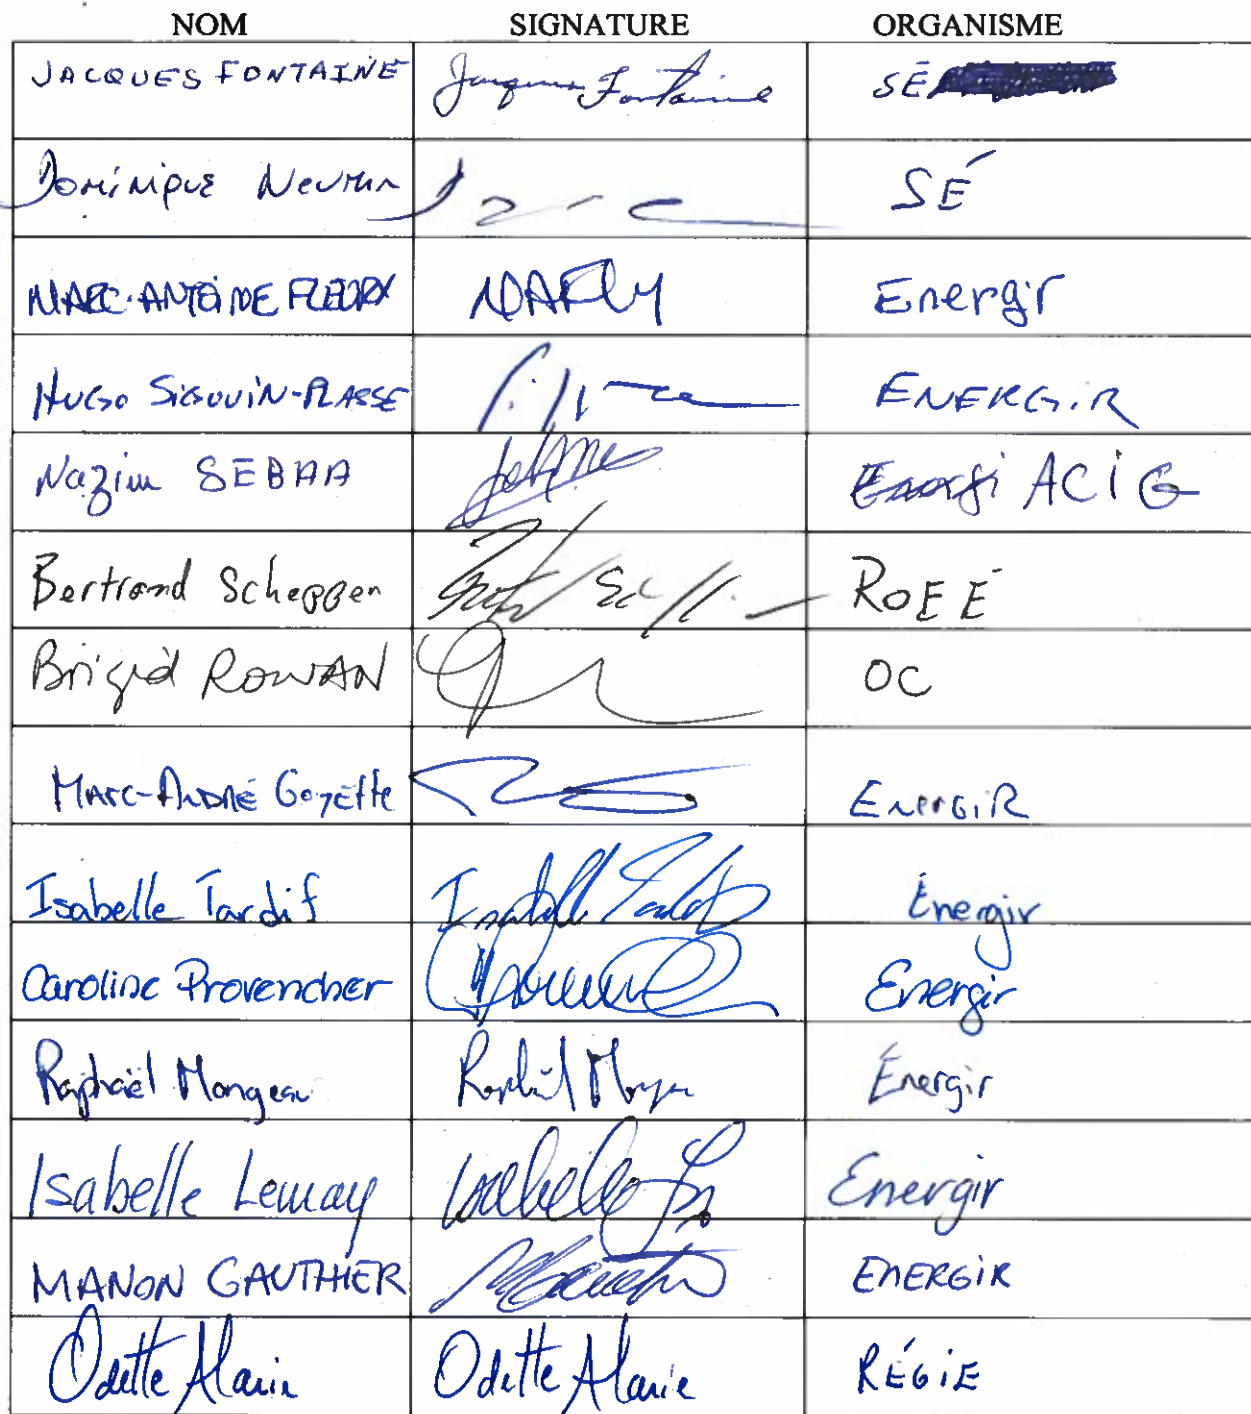 NOM SIGNATURE ORGANISME
JACQUES FONTAINE Jacques Fontaine SÉ
Dominique Neuman SÉ
MARC-ANTOINE FLEURY MAFly Energir
HUGO SIGOUIN-PLASSE ENERGIR
Nazim SEBAA Energi ACIG
Bertrand Schepper ROEÉ
Brigid ROWAN OC
MARC-ANDRÉ Goyette EnerGiR
Isabelle Tardif Isabelle Tardif Énergir
Caroline Provencher Énergir
Raphaël Mongeau Raphaël Mongeau Énergir
Isabelle Lemay Isabelle Énergir
MANON GAUTHIER ENERGIR
Odette Alarie Odette Alarie RÉGIE